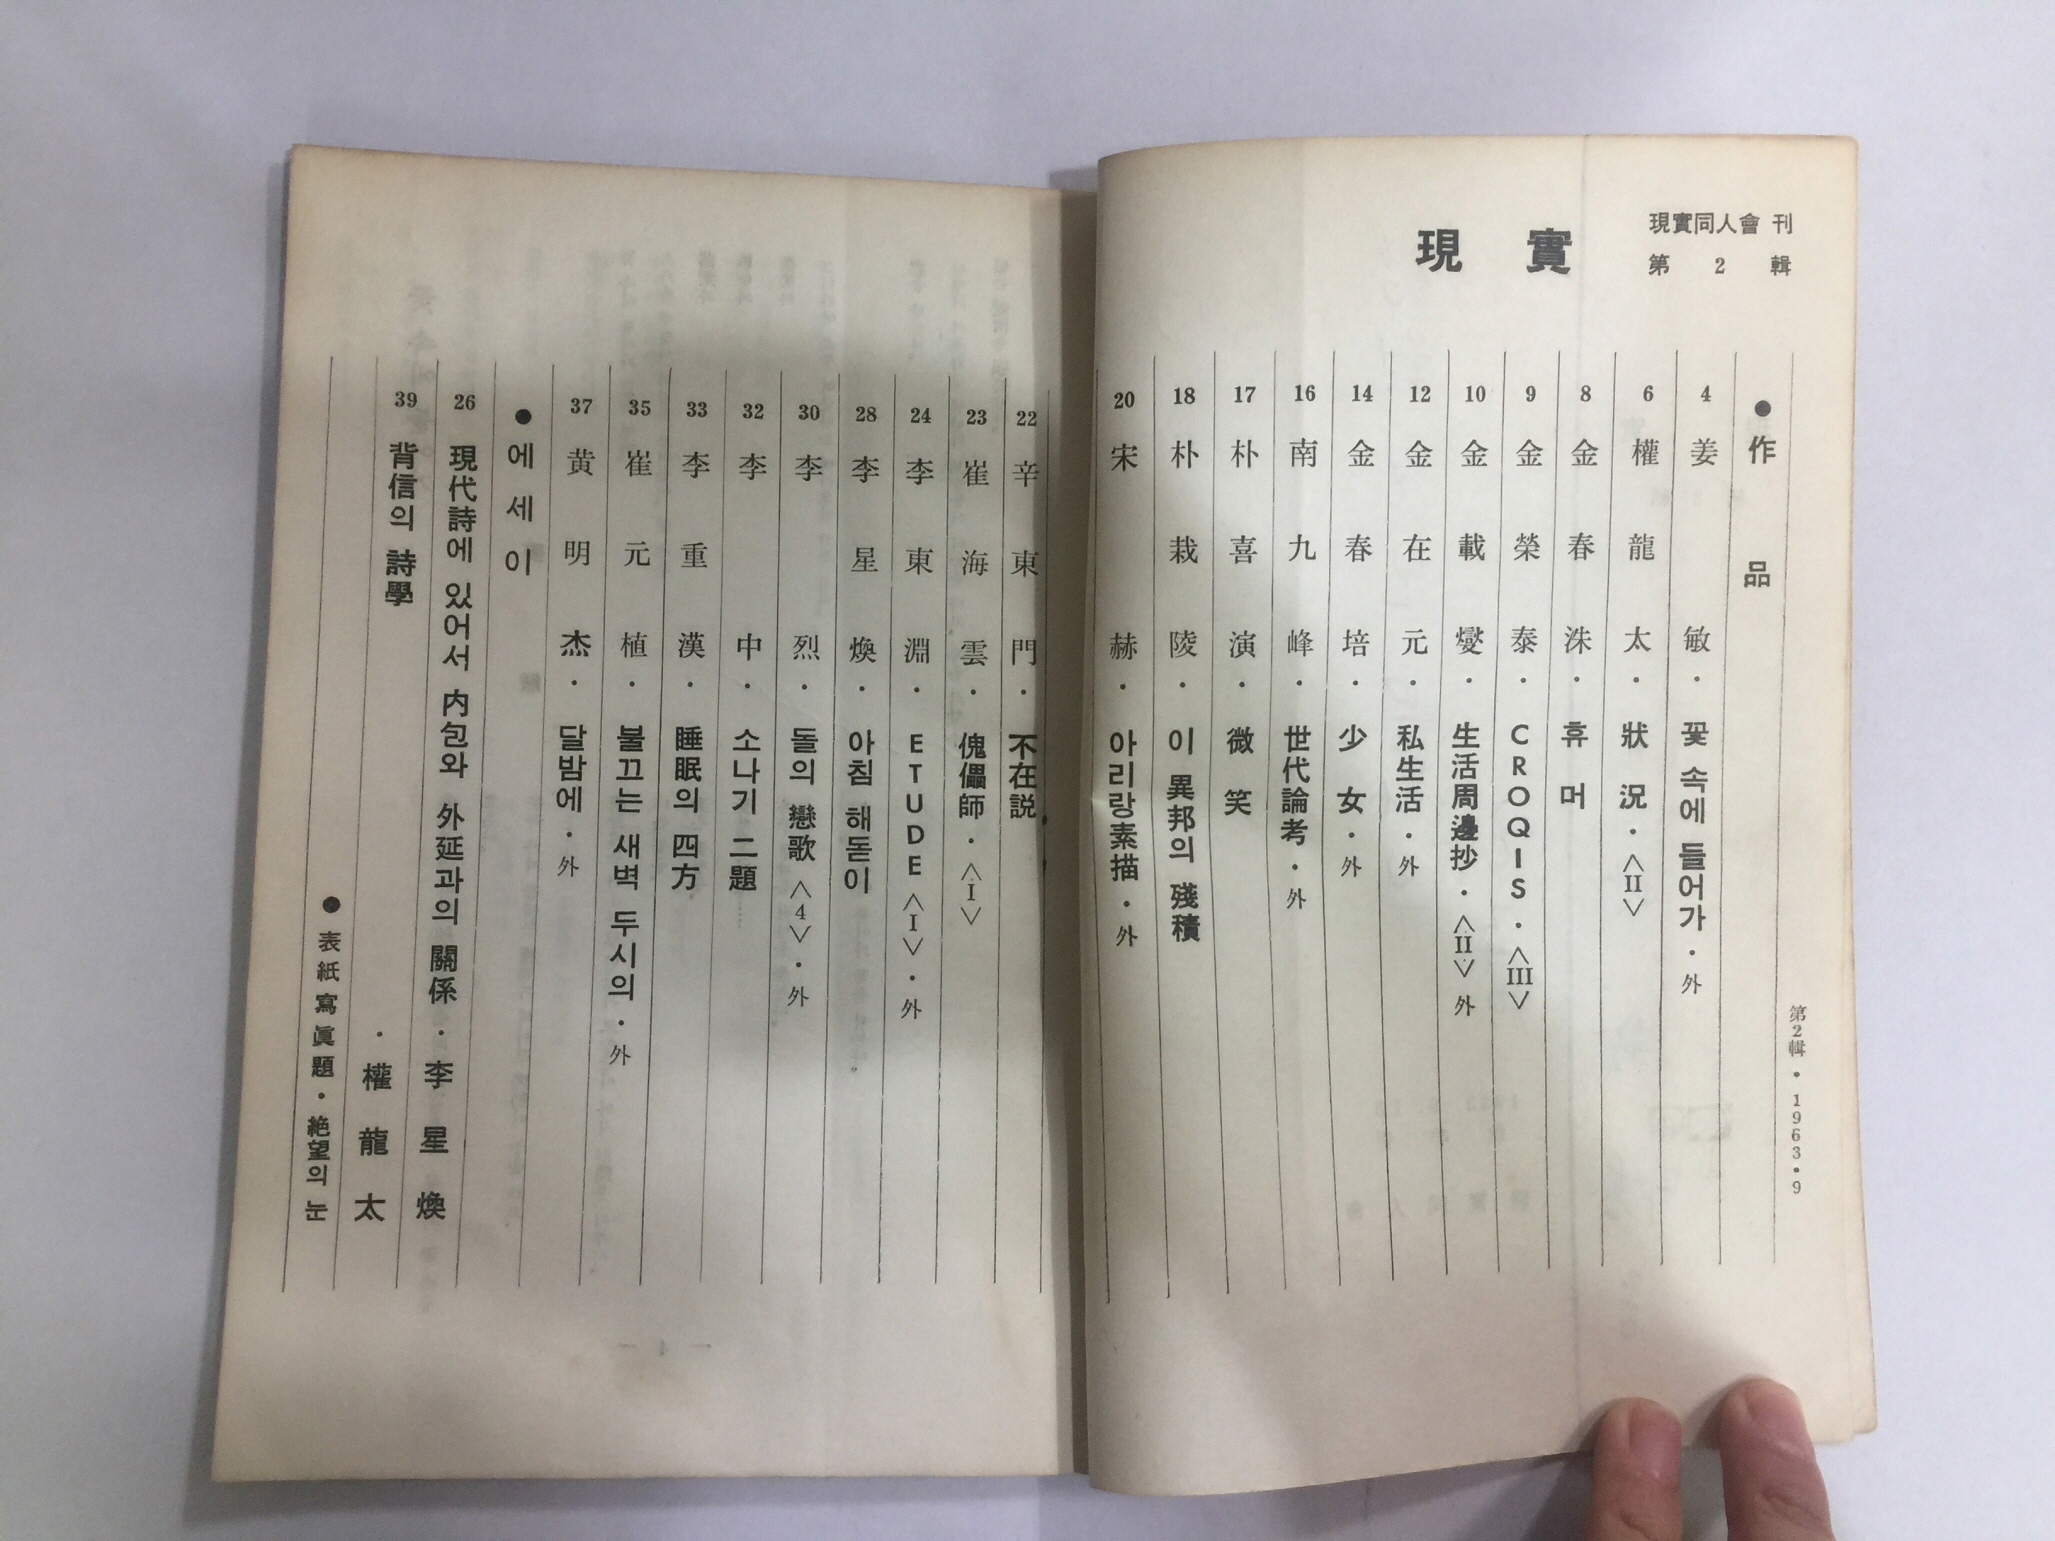 現實同人會 刊
第 2 輯
現 實
第2輯・1963・9
● 作 品
4 姜 敏・꽃 속에 들어가・外
6 權龍太・狀 況・<II>
8 金春洙・휴 머
9 金榮泰・CROQIS・<III>
10 金載燮・生活周邊抄・<II> 外
12 金在元・私生活・外
14 金春培・少 女・外
16 南九峰・世代論考・外
17 朴喜演・微 笑
18 朴栽陵・이 異邦의 殘積
20 宋 赫・아리랑素描・外
22 辛東門・不在説
23 崔海雲・傀儡師・<I>
24 李東淵・ETUDE <I>・外
28 李星煥・아침 해돋이
30 李 烈・돌의 戀歌 <4>・外
32 李 中・소나기 二題
33 李重漢・睡眠의 四方
35 崔元植・불끄는 새벽 두시의・外
37 黄明杰・달밤에・外
● 에 세 이
26 現代詩에 있어서 内包와 外延과의 關係・李 星 煥
39 背信의 詩學・權 龍 太
● 表紙寫眞題・絶望의 눈